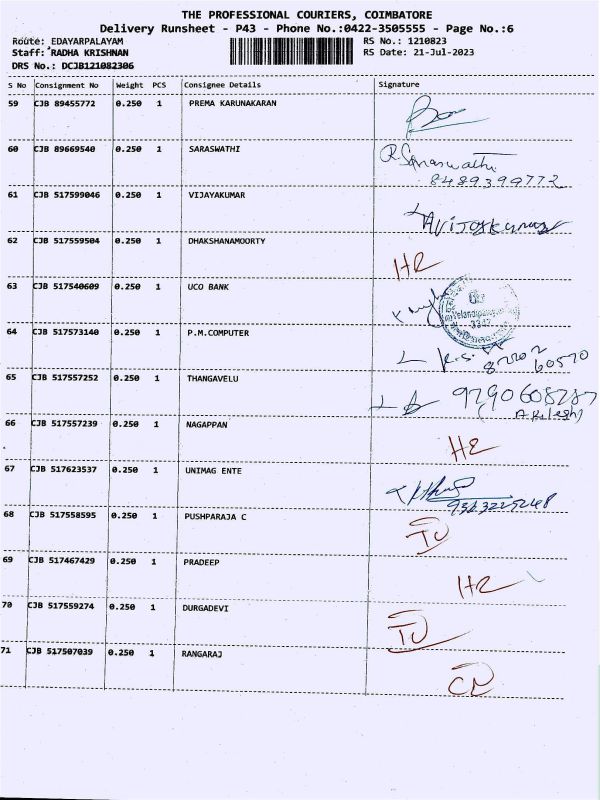 THE PROFESSIONAL COURIERS, COIMBATORE
Delivery Runsheet - P43 - Phone No.:0422-3505555 - Page No.:6
Route: EDAYARPALAYAM RS No.: 1210823
Staff: RADHA KRISHNAN RS Date: 21-Jul-2023
DRS No.: DCJB121082306
S No Consignment No Weight PCS Consignee Details Signature
59 CJB 89455772 0.250 1 PREMA KARUNAKARAN
60 CJB 89669540 0.250 1 SARASWATHI R Saraswathi
8489399772
61 CJB 517599046 0.250 1 VIJAYAKUMAR
62 CJB 517559504 0.250 1 DHAKSHANAMOORTY HR
63 CJB 517540609 0.250 1 UCO BANK
64 CJB 517573140 0.250 1 P.M.COMPUTER
60570
65 CJB 517557252 0.250 1 THANGAVELU 9790608787
66 CJB 517557239 0.250 1 NAGAPPAN HR
67 CJB 517623537 0.250 1 UNIMAG ENTE
68 CJB 517558595 0.250 1 PUSHPARAJA C TU
69 CJB 517467429 0.250 1 PRADEEP HR
70 CJB 517559274 0.250 1 DURGADEVI TU
71 CJB 517507039 0.250 1 RANGARAJ